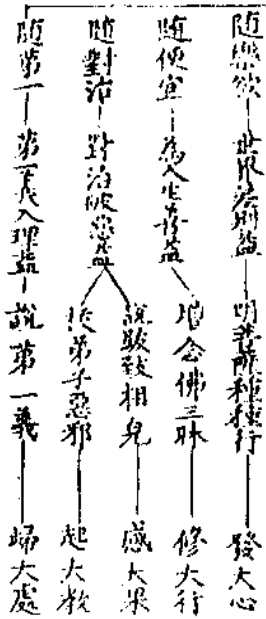 隨樂欲—世界差別益—明菩薩種種行—發大心
隨便宜—為人生善益—增念佛三昧—修大行
隨對治—對治破惡益
說致相皃—感大果
弟子惡邪—起大教
隨第一—第一義入理益—說第一義—歸大處